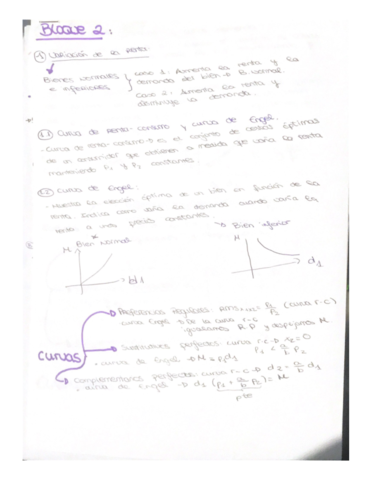 Bloque 2:
1 Variación de la renta:
Bienes normales { Caso 1: Aumenta la renta y la
e inferiores demanda del bien es B. normal.
Caso 2: Aumenta la renta y
disminuye la demanda.
1.1 Curva de renta-consumo y curva de Engel.
- Curva de renta-consumo: es el conjunto de cestas óptimas
de un consumidor que obtienen a medida que varía la renta
manteniendo P1 y P2 constantes.
1.2 Curva de Engel:
- Muestra la elección óptima de un bien en función de la
renta. Indica cómo varía la demanda cuando varía la
renta a unos precios constantes.
Bien Normal
Bien inferior
M
d1
M
d1
curvas
Preferencias Regulares: (curva r-c)
curva Engel de la curva r-c
R.P y despejamos M.
Sustitutivos perfectos curva r-c
• curva de Engel → M = P1d1
Complementarios perfectos curva r-c → d2 = a/b d1
• curva de Engel → d1 (P1 + a/b P2) = M